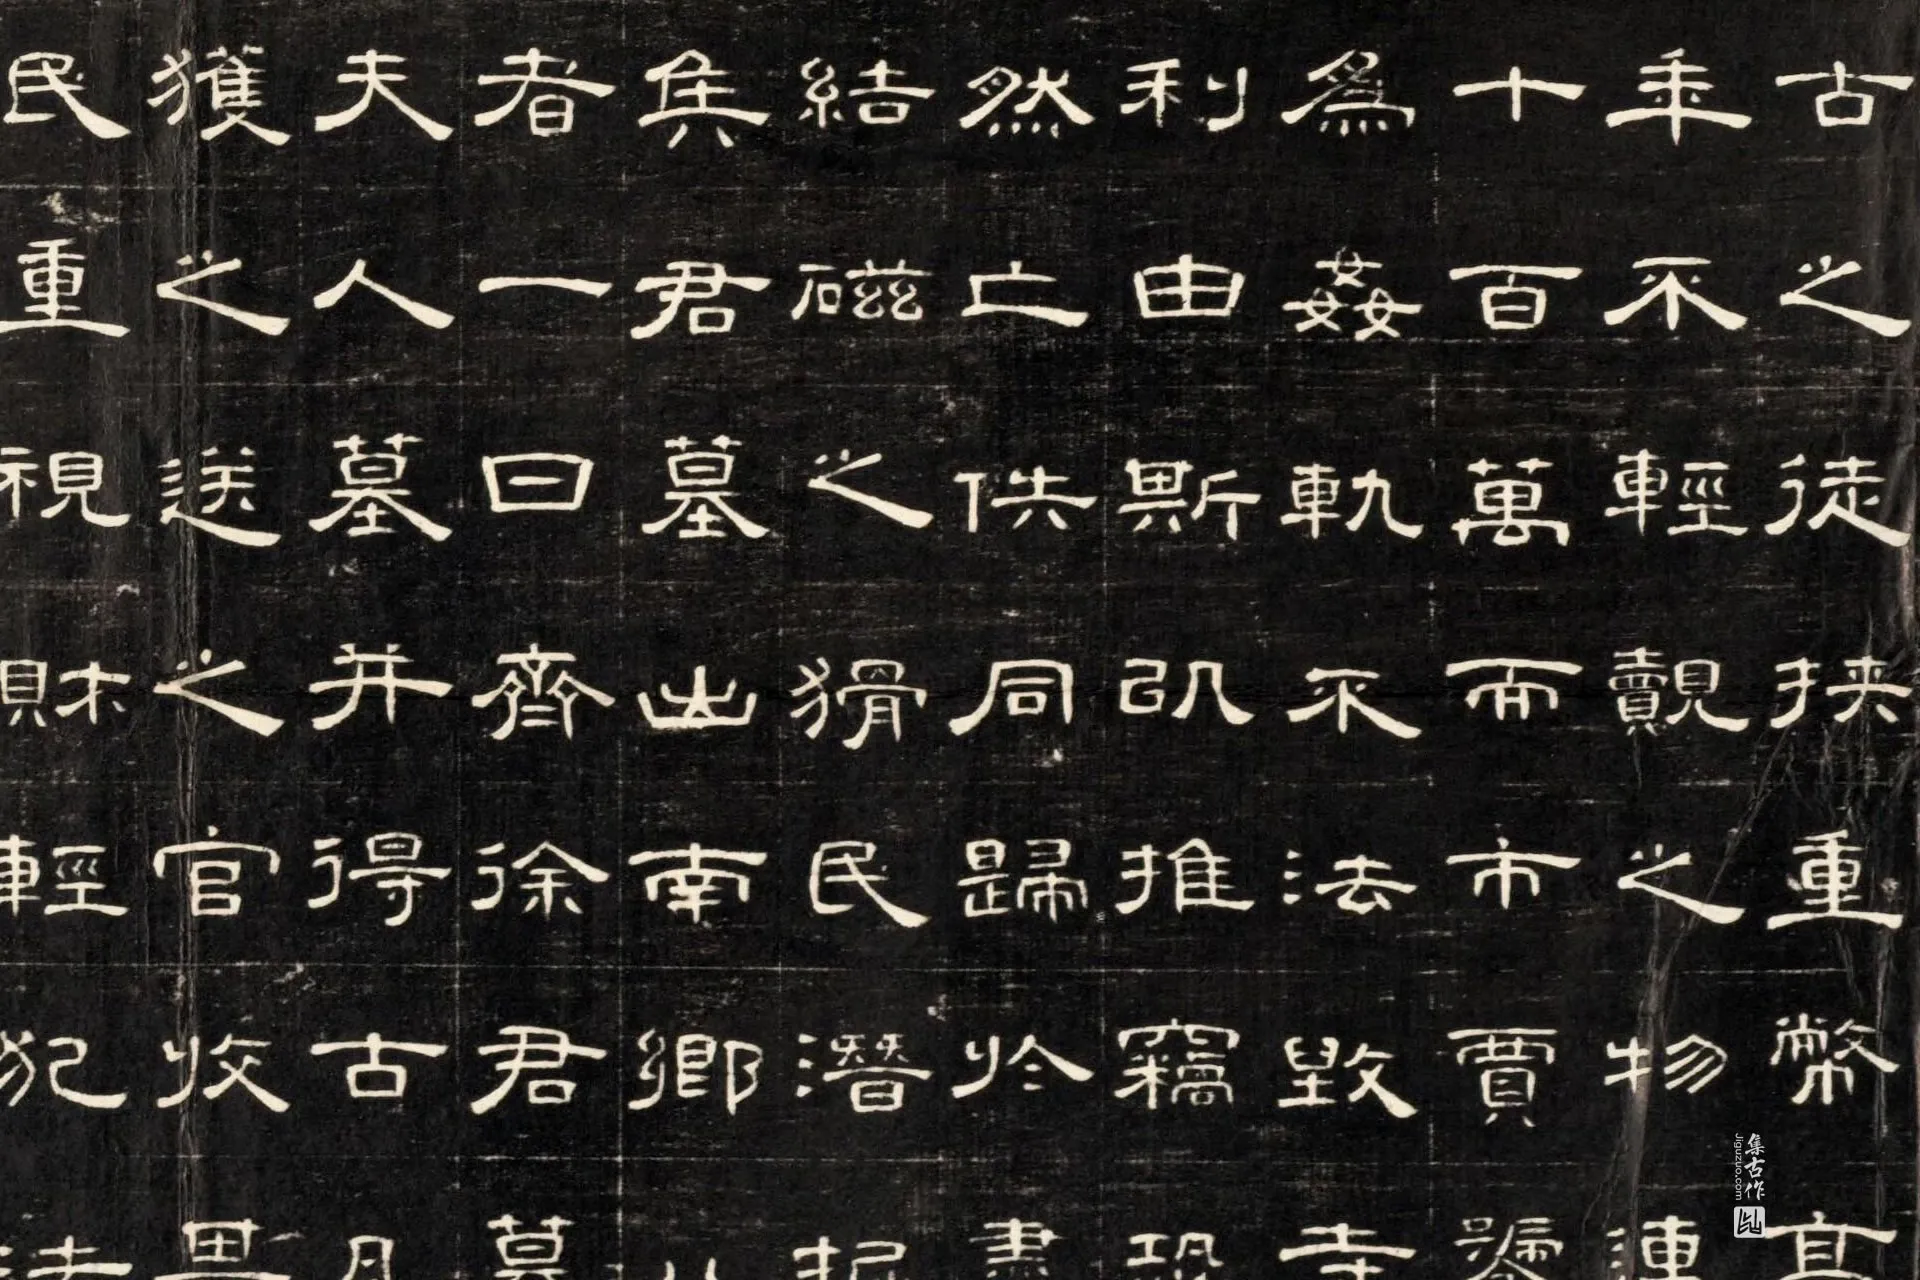 古之徒挾重幣高
年不輕覿之物連
十百萬而市賈號
為姦軌不法毀寺
利由斯以推竊恐
然亡佚同歸於盡
結磁之猾民潛掘
君墓出南鄉八
者一曰齊徐君墓
夫人墓并得古
獲之送之官收
民重視財輕犯法
集古作
Jiguzuo.com